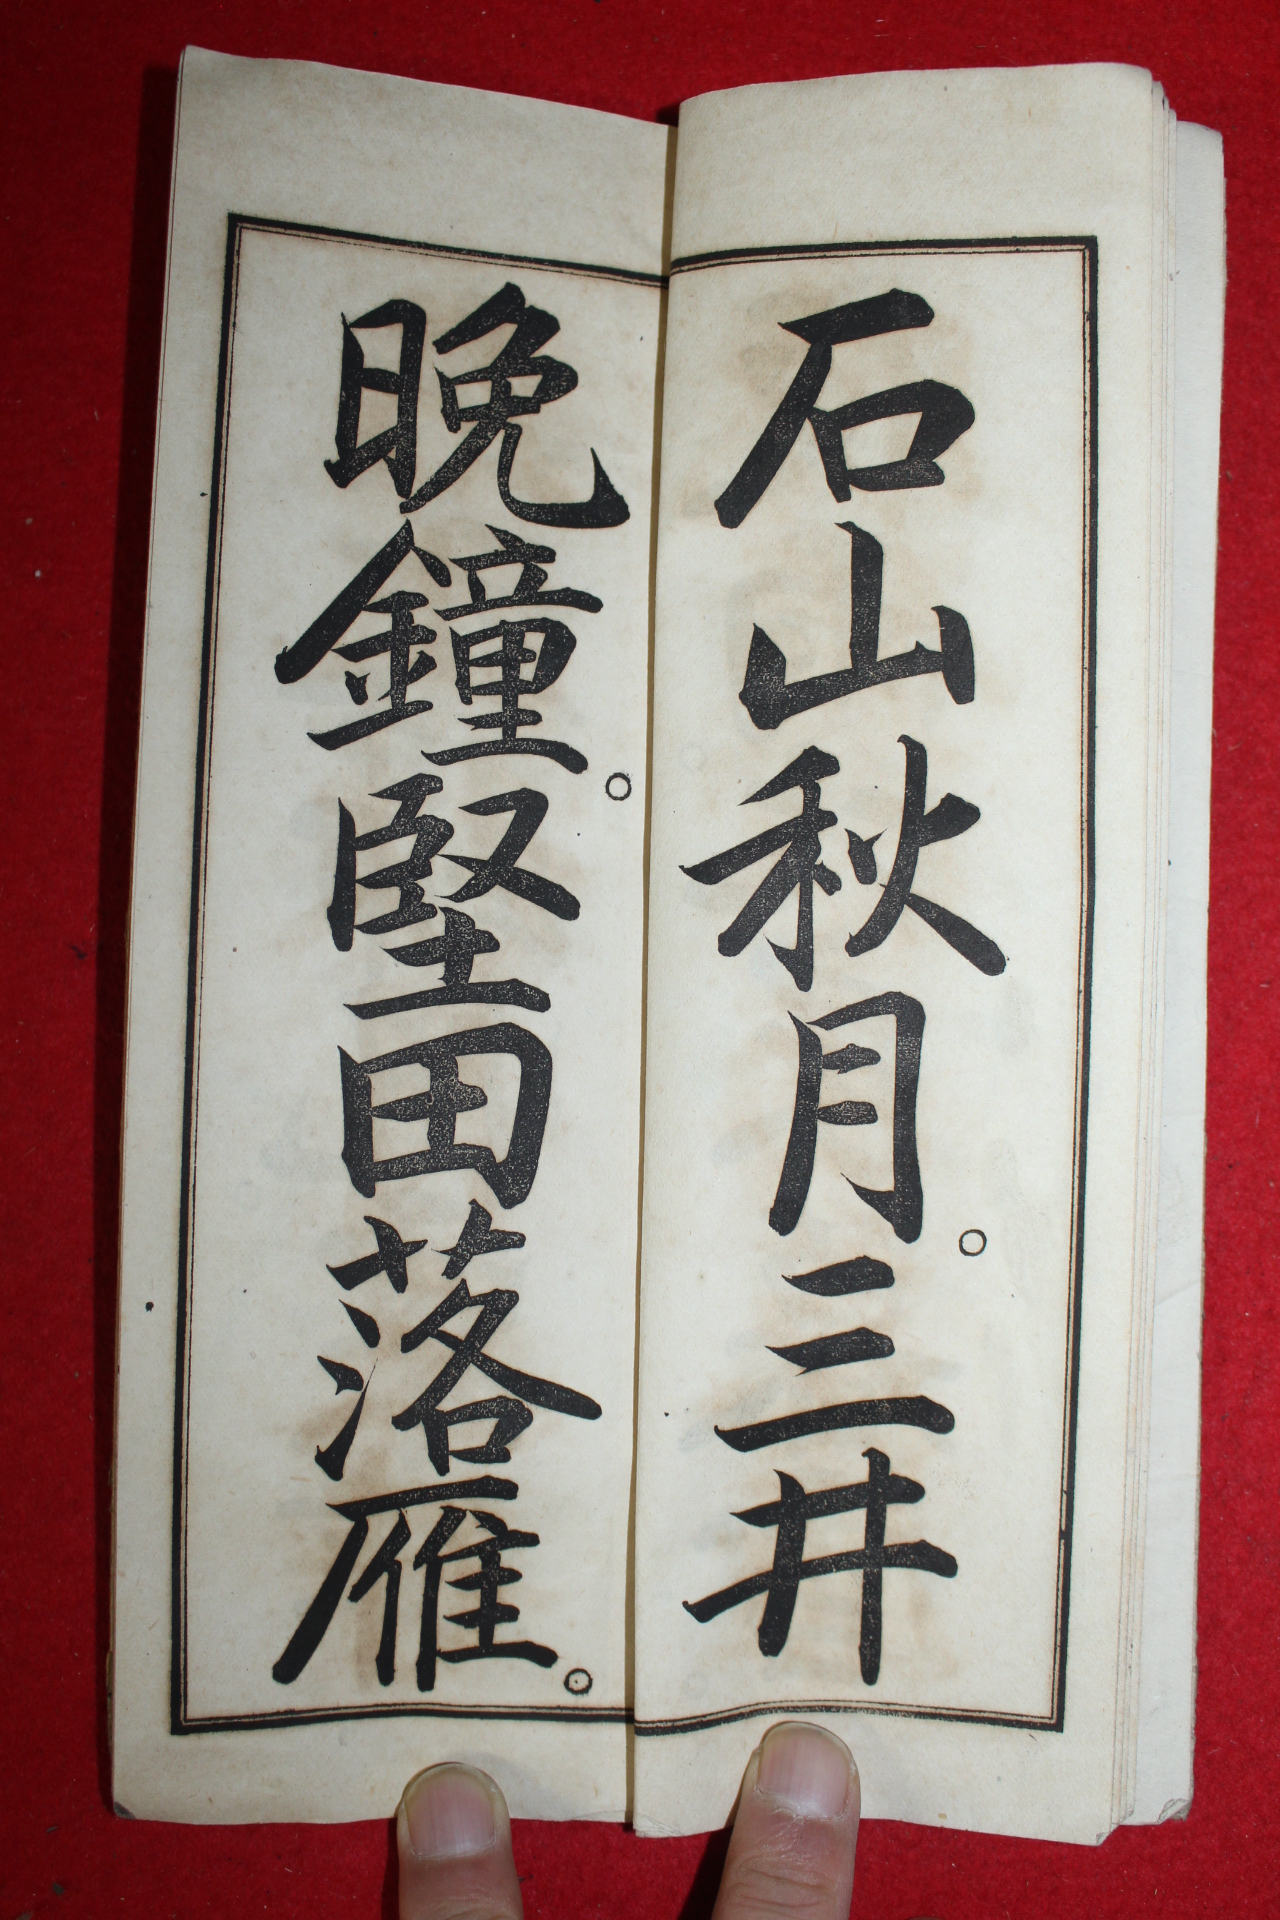 石山秋月。三井
晩鐘。堅田落雁。